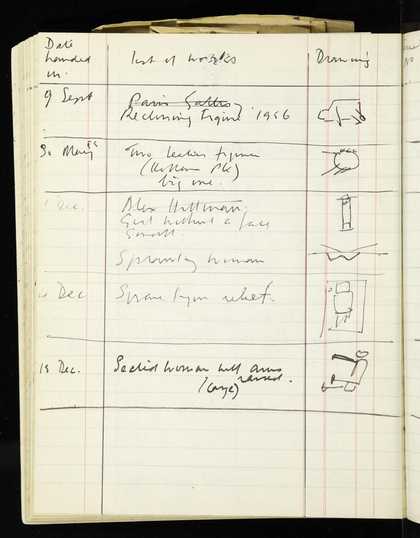 Date
handed
in.
List of works
Drawing
9 Sept
Paris
Reclining Figure 1956
30 Many
Two section figure
big one.
Dec.
Alex Hittman
Girl without a face
Sprawling woman
Dec
Square figure relief.
18 Dec.
Seated woman with arms
raised.
(large)